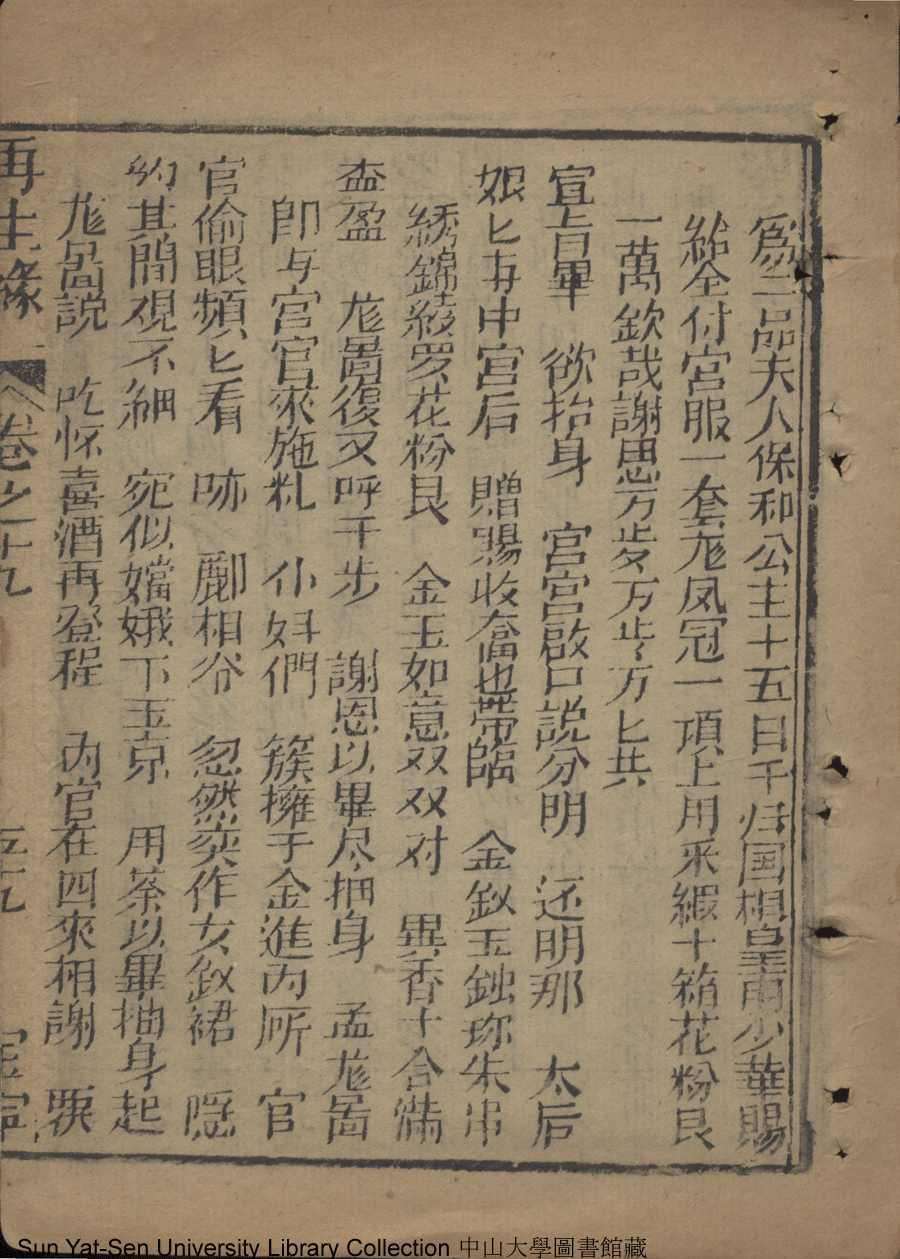 為一品夫人保和公主十五日于归国相皇甫少華賜
給全付宮服一套尨凤冠一項上用采緞十箱花粉艮
一萬欽哉謝恩万歩万歩万匕共
宣旨畢　欲抬身　宮宮啟口説分明　还明那　太后
娘匕与中宮后　贈賜收奩也带臨　金釵玉鈯珎朱串
綉錦綾罗花粉艮　金玉如意双双对　異香十合满
盃盈　尨啚復又呼千步　謝恩以畢尽抽身　孟尨啚
即与宮官來施礼　仆妇們　簇擁于金進内所　官
官偷眼頻匕看　咏　酈相爷　忽然奕作女釵裙　嘅
約其間观不細　宛似嫦娥下玉京　用茶以畢抽身起
尨啚説　吃怀喜酒再登程　内官在四來相謝
再生緣　卷之十九　五十九
Sun Yat-Sen University Library Collection 中山大學圖書館藏